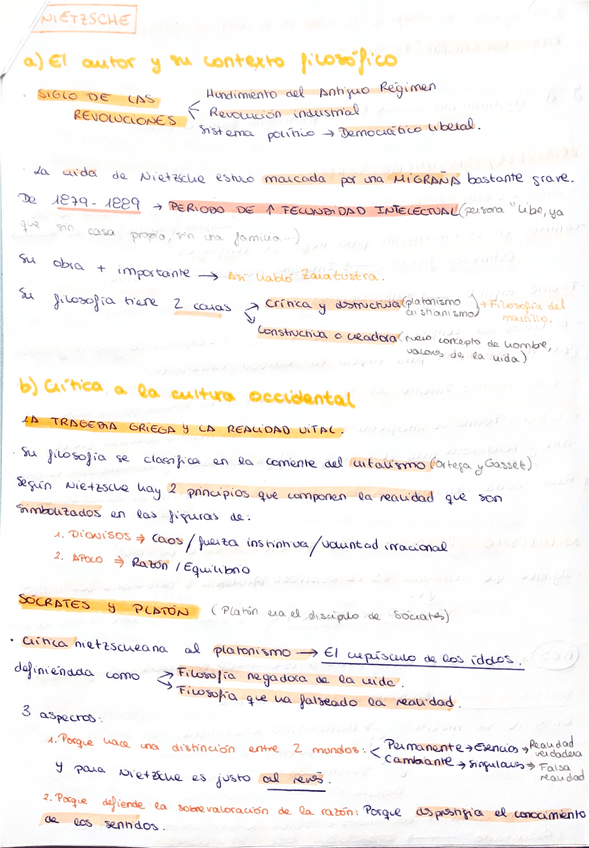 NIETZSCHE
a) El autor y su contexto filosófico
· SIGLO DE LAS REVOLUCIONES
Hundimiento del Antiguo Régimen
Revolución industrial
Sistema político → Democrático liberal.
· La vida de Nietzsche estuvo marcada por una MIGRAÑA bastante grave.
De 1879-1889 → PERIODO DE ↑ FECUNDIDAD INTELECTUAL (persona "libe, ya
que sin casa propia, sin una familia...)
Su obra + importante → Así habló Zaratustra.
Su filosofía tiene 2 caras
Crítica y destructiva (platonismo cristianismo) + Filosofía del martillo.
Constructiva o creadora (nuevo concepto de hombre, valores de la vida)
b) Crítica a la cultura occidental
LA TRAGEDIA GRIEGA Y LA REALIDAD VITAL.
· Su filosofía se clasifica en la corriente del vitalismo (Ortega y Gasset)
Según Nietzsche hay 2 principios que componen la realidad que son
simbolizados en las figuras de:
1. DIONISOS ⇒ Caos / fuerza instintiva / voluntad irracional
2. APOLO ⇒ Razón / Equilibrio
SÓCRATES Y PLATÓN (Platón era el discípulo de Sócrates)
· Crítica nietzscheana al platonismo → El crepúsculo de los ídolos.
definiéndola como
Filosofía negadora de la vida.
Filosofía que ha falseado la realidad.
3 aspectos:
1. Porque hace una distinción entre 2 mundos:
Permanente → Esencias → Realidad verdadera
Cambiante → singulares → Falsa realidad
y para Nietzsche es justo al revés.
2. Porque defiende la sobrevaloración de la razón: Porque desprestigia el conocimiento
de los sentidos.